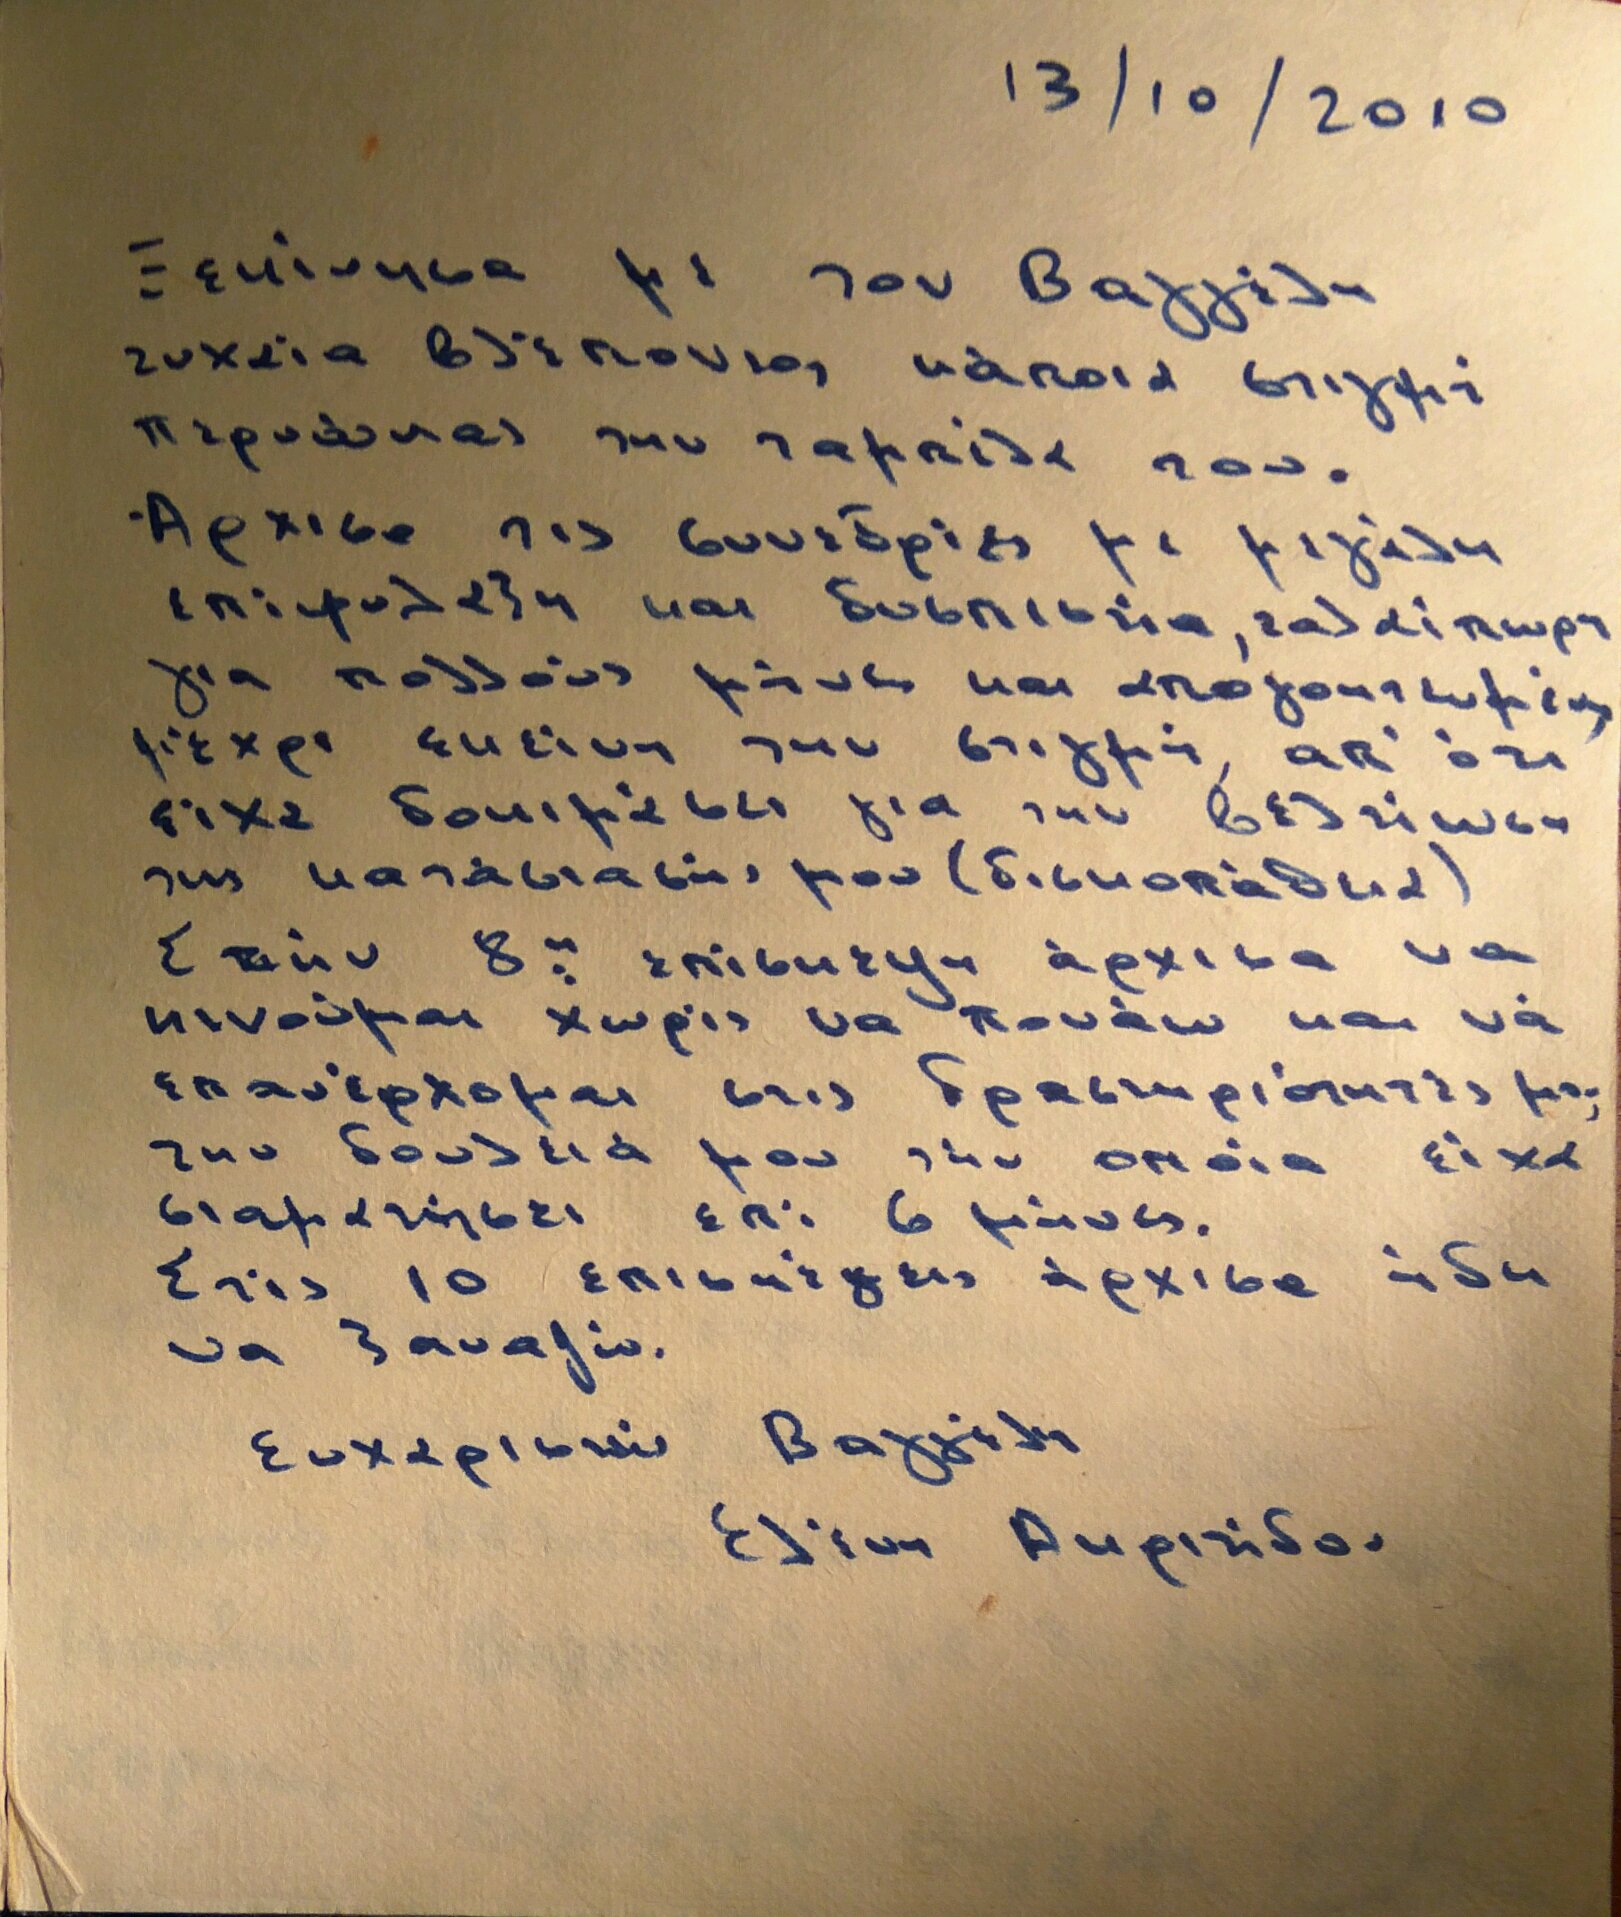 13/10/2010
Ξεκίνησα με τον Βαγγέλη
τυχαία βλέποντας κάποια στιγμή
περνώντας την ταμπέλα του.
Άρχισα τις συνεδρίες με μεγάλη
επιφύλαξη και δυσπιστία, ταλαίπωρη
για πολλούς μήνες και απογοητευμένη
μέχρι εκείνη την στιγμή, απ' ότι
είχα δοκιμάσει για την βελτίωση
της κατάστασής μου (δισκοπάθεια)
Στην 8η επίσκεψη άρχισα να
κινούμαι χωρίς να πονάω και νά
επανέρχομαι στις δραστηριότητές μου,
την δουλειά μου την οποία είχα
σταματήσει επί 6 μήνες.
Στις 10 επισκέψεις άρχισα ήδη
να ξαναζώ.
Ευχαριστώ Βαγγέλη
Ελένη Ακριτίδου